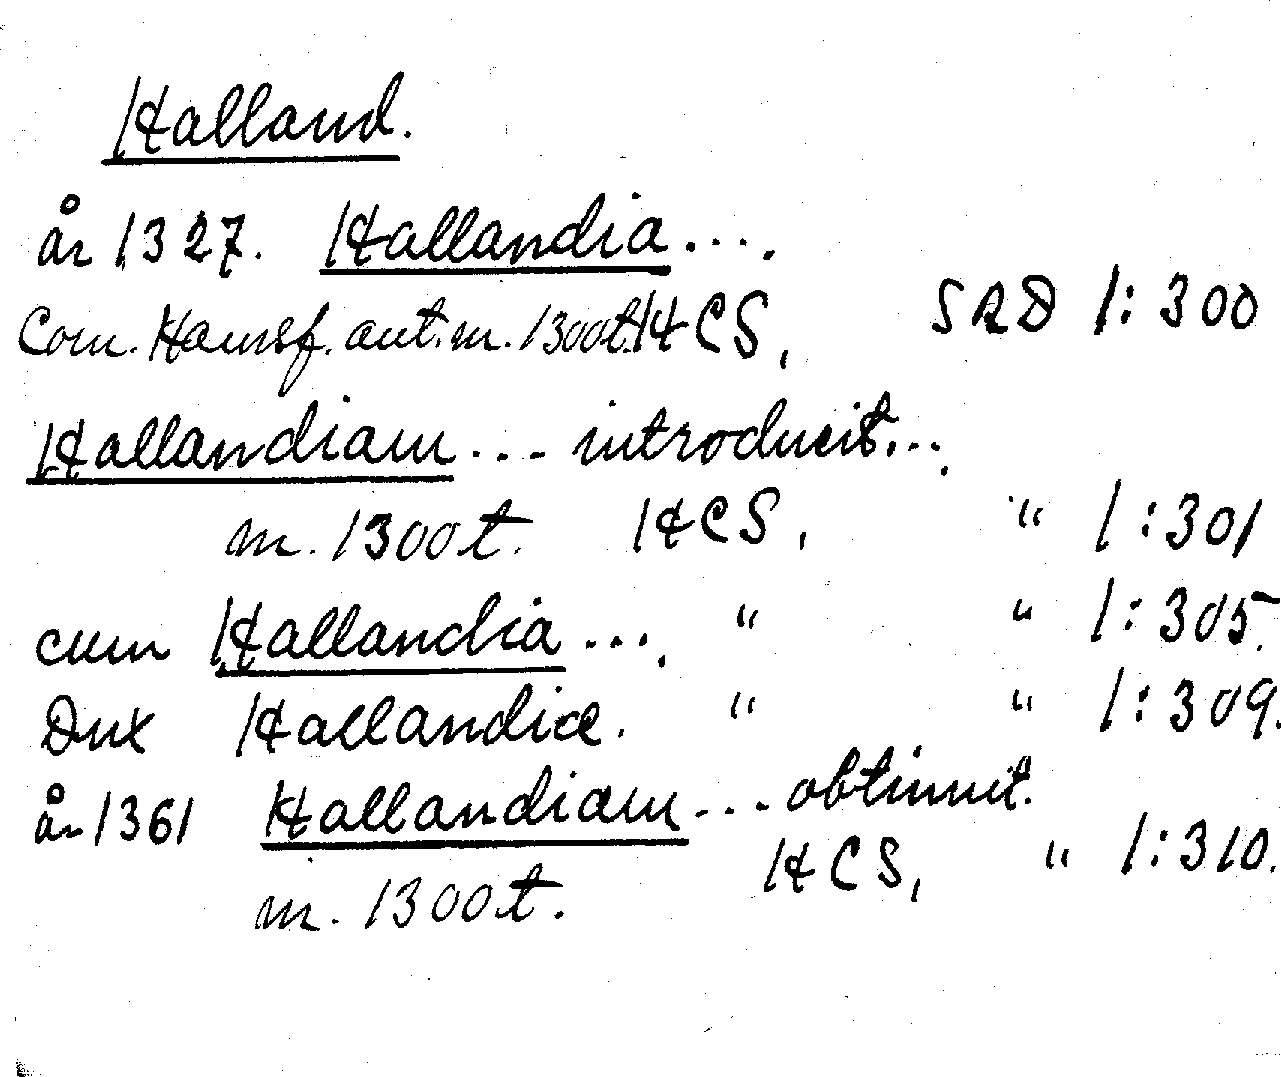 Halland.
år 1327. Hallandia....
Com. Hamsf. ant. m. 1300t. HCS, SRD 1:300
Hallandiam ... introducit....
m. 1300t. HCS, " 1:301
cum Hallandia ...., " " 1:305.
Dux Hallandiæ. " " 1:309.
år 1361 Hallandiam ... obtinuit.
m. 1300t. HCS, " 1:310.